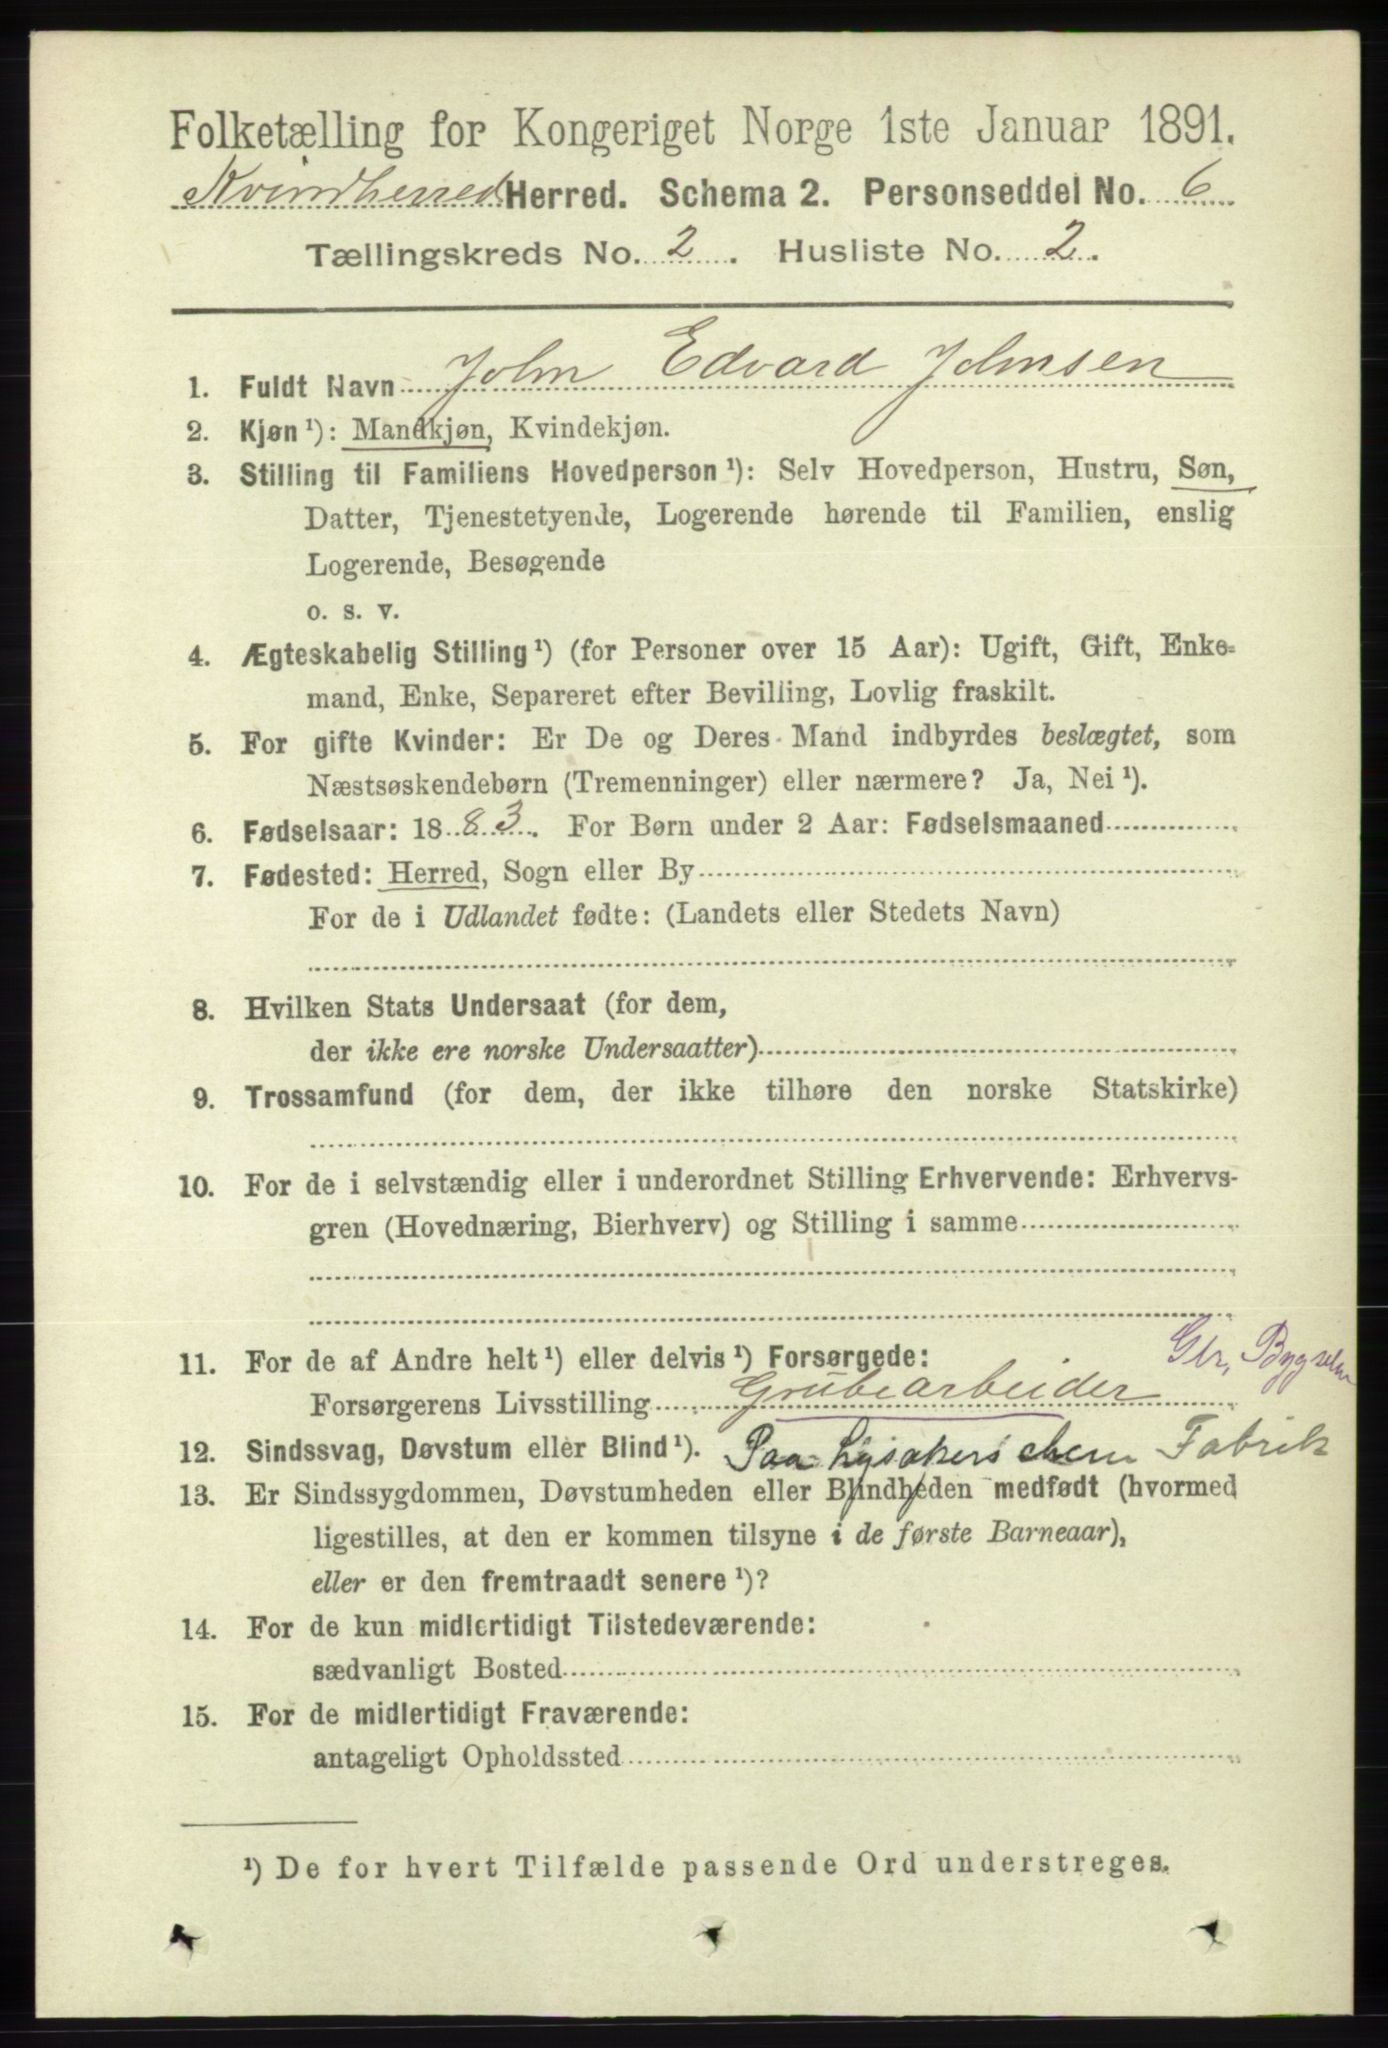 Folketælling for Kongeriget Norge 1ste Januar 1891.
Kvindherred Herred. Schema 2. Personseddel No. 6
Tællingskreds No. 2. Husliste No. 2.
1. Fuldt Navn John Edvard Johnsen
2. Kjøn ¹): Mandkjøn, Kvindekjøn.
3. Stilling til Familiens Hovedperson ¹): Selv Hovedperson, Hustru, Søn,
Datter, Tjenestetyende, Logerende hørende til Familien, enslig
Logerende, Besøgende
o. s. v.
4. Ægteskabelig Stilling ¹) (for Personer over 15 Aar): Ugift, Gift, Enke-
mand, Enke, Separeret efter Bevilling, Lovlig fraskilt.
5. For gifte Kvinder: Er De og Deres Mand indbyrdes beslægtet, som
Næstsøskendebørn (Tremenninger) eller nærmere? Ja, Nei ¹).
6. Fødselsaar: 1883. For Børn under 2 Aar: Fødselsmaaned
7. Fødested: Herred, Sogn eller By
For de i Udlandet fødte: (Landets eller Stedets Navn)
8. Hvilken Stats Undersaat (for dem,
der ikke ere norske Undersaatter)
9. Trossamfund (for dem, der ikke tilhøre den norske Statskirke)
10. For de i selvstændig eller i underordnet Stilling Erhvervende: Erhvervs-
gren (Hovednæring, Bierhverv) og Stilling i samme
11. For de af Andre helt ¹) eller delvis ¹) Forsørgede:
Forsørgerens Livsstilling Grubearbeider
12. Sindssvag, Døvstum eller Blind ¹). Paa Lysakers chem Fabrik
13. Er Sindssygdommen, Døvstumheden eller Blindheden medfødt (hvormed
ligestilles, at den er kommen tilsyne i de første Barneaar),
eller er den fremtraadt senere ¹)?
14. For de kun midlertidigt Tilstedeværende:
sædvanligt Bosted
15. For de midlertidigt Fraværende:
antageligt Opholdssted
¹) De for hvert Tilfælde passende Ord understreges.